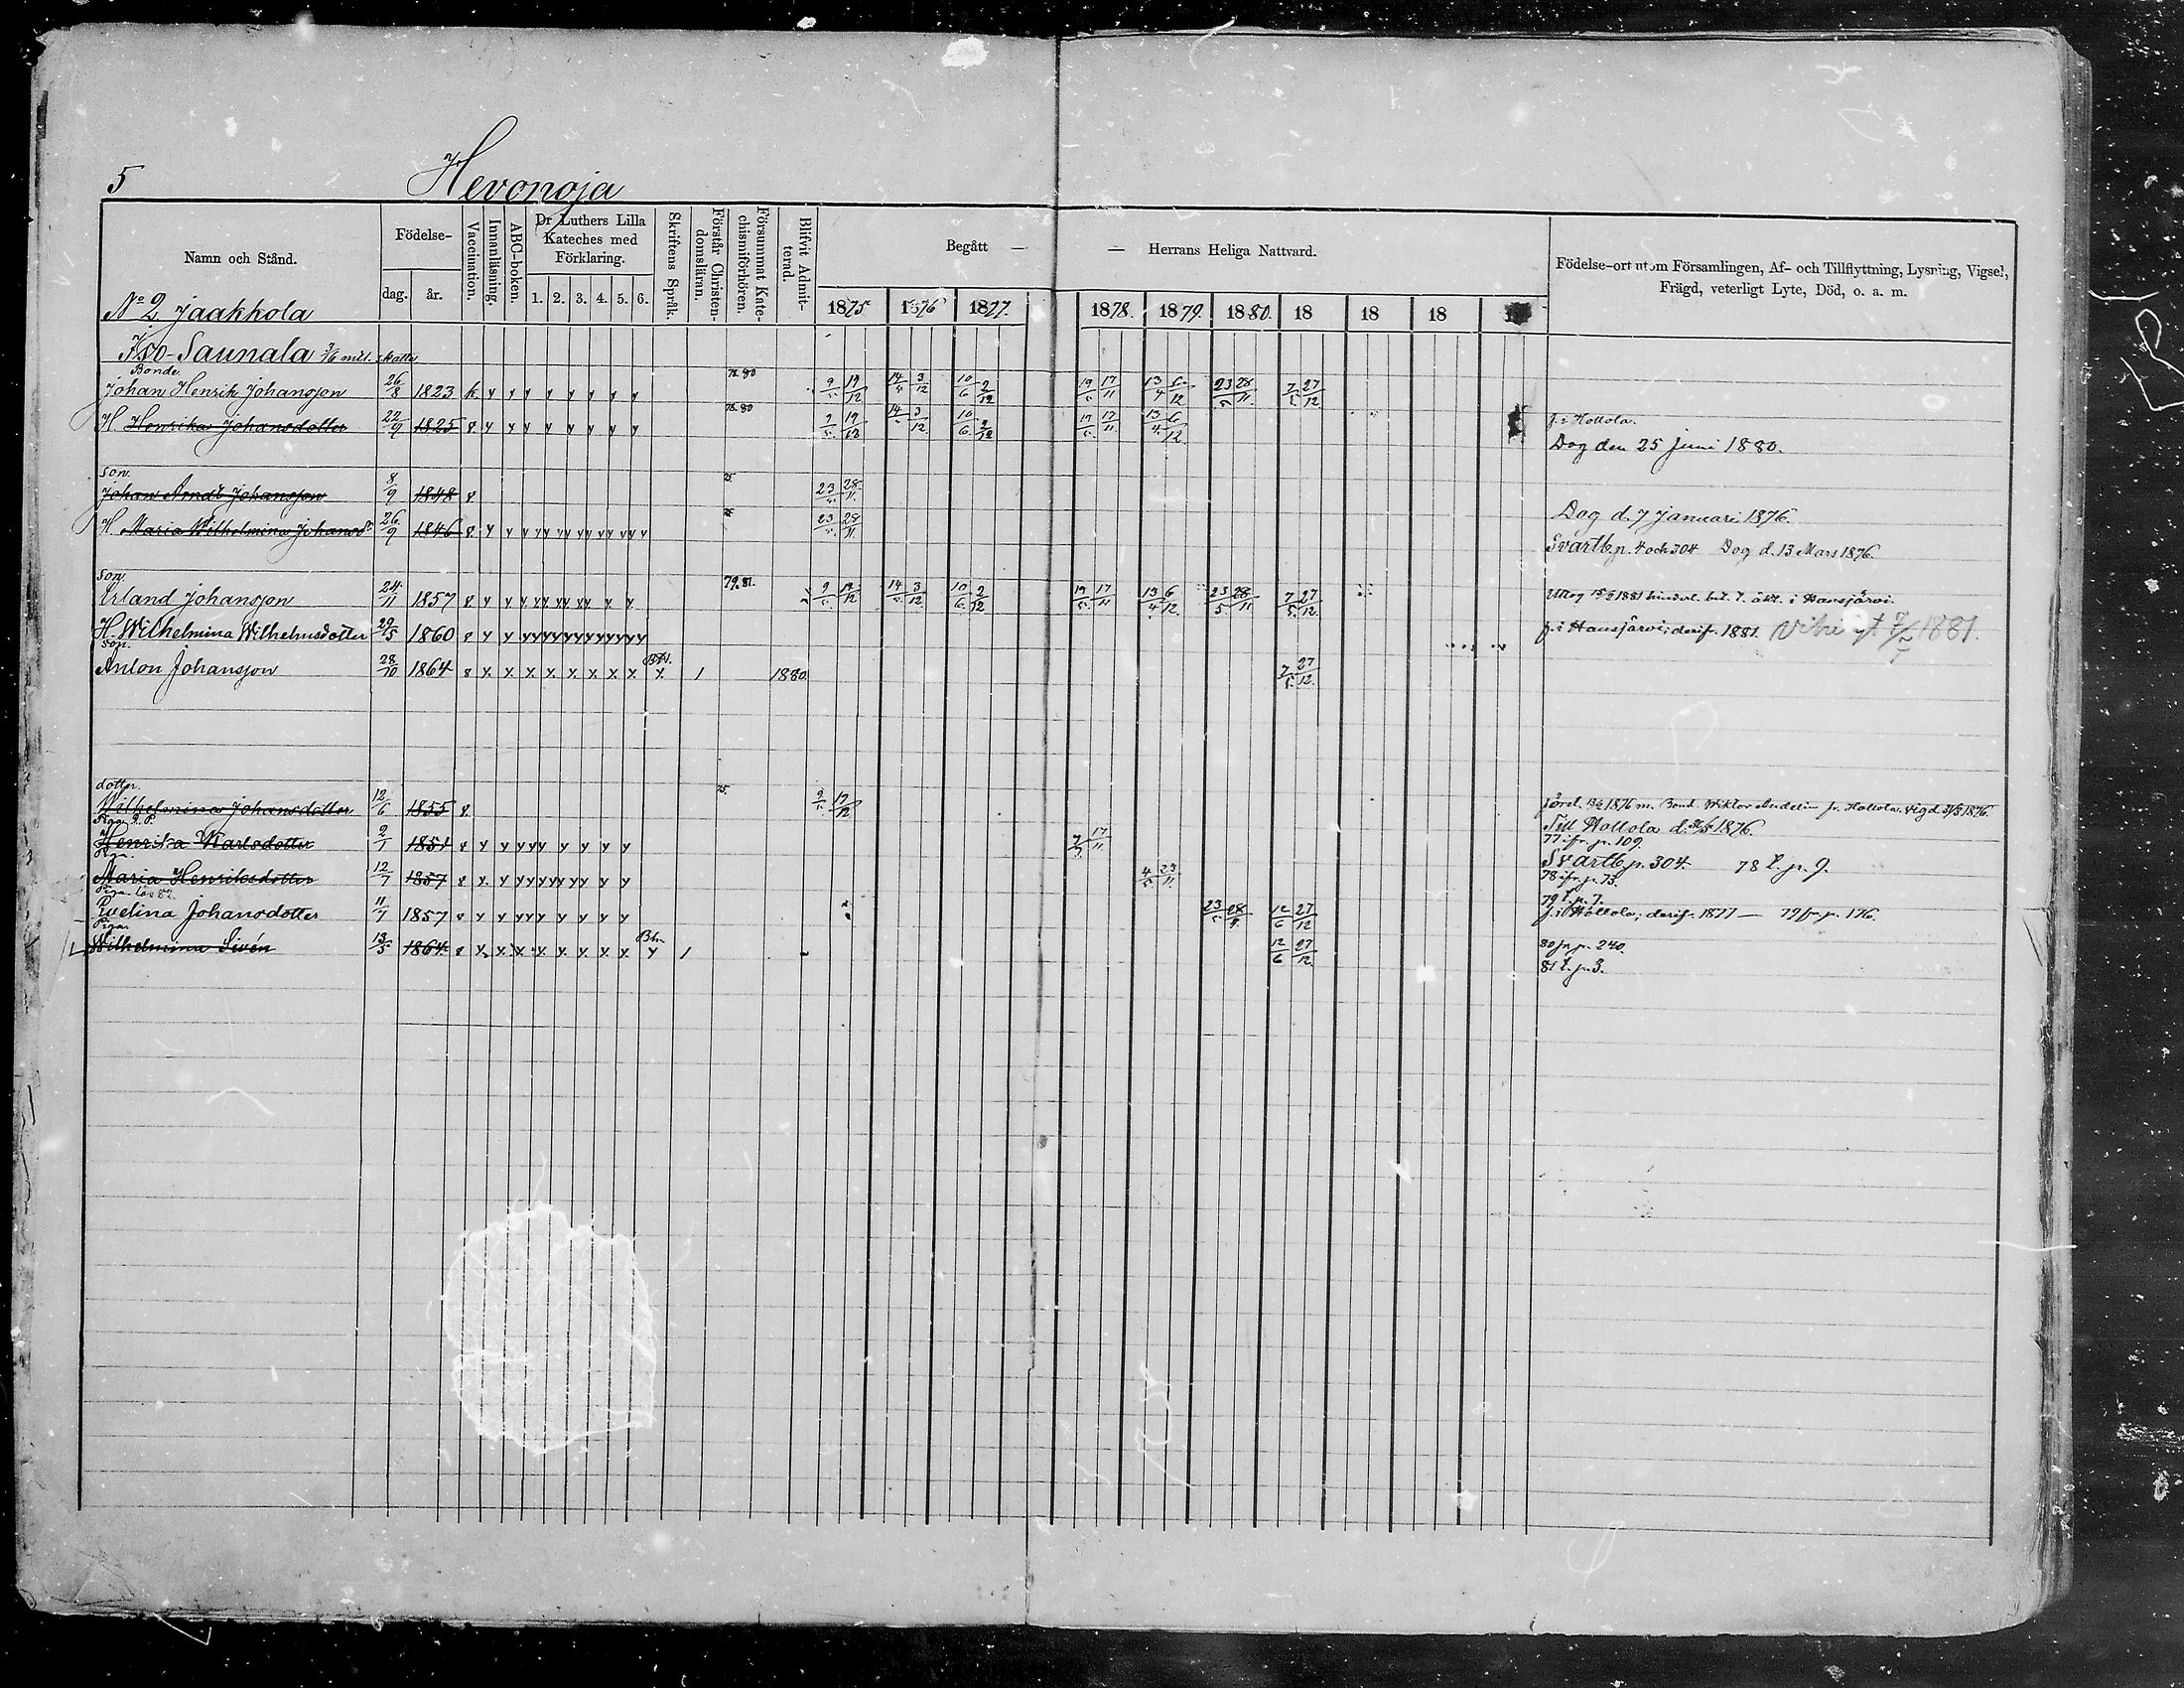 5
Hevonoja
Namn och Stånd.
Födelse-
dag.
år.
Vaccination.
Innanläsning.
ABC-boken.
Dr Luthers Lilla Kateches med Förklaring.
1. 2. 3. 4. 5. 6.
Skriftens Språk.
Förstår Christendomsläran.
Försummat Katechismiförhören.
Blifvit Admitterad.
Begått — — Herrans Heliga Nattvard.
1875 1876 1877. 1878. 1879. 1880. 18 18 18
Födelse-ort utom Församlingen, Af- och Tillflyttning, Lysning, Vigsel,
Frägd, veterligt Lyte, Död, o. a. m.
No 2 Jaakkola
Iso-Saunala mtl. skatte
Bonde.
Johan Henrik Johansson 26/8 1823 k. y y y y y y y y 78.80 9/5 19/12 14/5 3/12 10/6 2/12 19/5 17/11 13/4 6/12 23/5 28/11 7/5 27/12
H. Henrika Johansdotter 22/9 1825 y y y y y y y y 78.80 9/5 19/12 14/5 3/12 10/6 2/12 19/5 17/11 13/4 6/12 f. i Hollola.
Dog den 25 Juni 1880.
son.
Johan Arndt Johansson 8/9 1848 75 23/5 28/11
Dog d. 7 Januari 1876.
H. Maria Wilhelmina Johansdr 26/9 1846 y y y yy yy yy yy yy 23/5 28/11
Svartb. p. 4 och 304 Dog d. 13 Mars 1876
son.
Erland Johansson 24/11 1857 y y y yy yy yy y y 79.81. 9/5 19/12 14/5 3/12 10/6 2/12 19/5 17/11 13/4 6/12 23/5 28/11 7/5 27/12 1881 hindersl. bet. t. äkt. i Hausjärvi.
H. Wilhelmina Wilhelmsdotter 29/5 1860 y y y yy yy yy yy yy yy f. i Hausjärvi; derif. 1881. 1881.
son.
Anton Johansson 28/10 1864 y. y. y. y. y. y. y. y. y. 1 1880. 7/5 27/12
dotter.
Wilhelmina Johansdotter 12/6 1855 75. 9/5 19/12 1876 m. Bond. Wiktor Andelin fr. Hollola. Vigd 1876.
Till Hollola d. 1876.
Piga.
Henrika Karlsdotter 2/1 1851 y y y yy y y y y 7/5 17/11 77 ifr. p. 109.
Svartb. p. 304. 78 t. p. 9.
Piga.
Maria Henriksdotter 12/7 1857 y. y yy yy yy y y 4/5 23/11 78 ifr. p. 73.
79 t. p. 7.
Piga.
Evelina Johansdotter 11/7 1857 y y yy y y y y y 23/5 28/11 12/6 27/12 f. i Hollola; derif. 1877 — 79 fr. p. 176.
Piga.
Wilhelmina Sivén 13/5 1864 y. y. y. y. y. y. y. y. y 1 12/6 27/12 80 fr. p. 240.
81 t. p. 3.